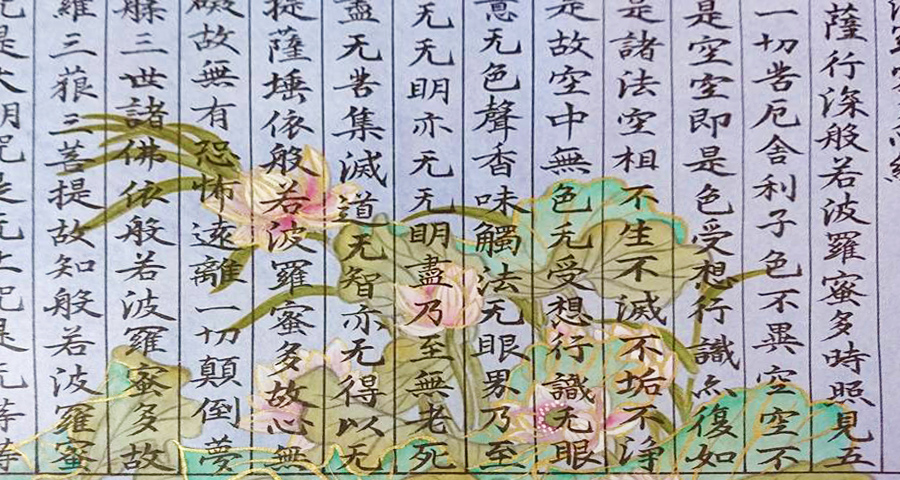 薩行深般若波羅蜜多時照見五
一切苦厄舍利子色不異空空不
是空空即是色受想行識亦復如
是諸法空相不生不滅不垢不淨
是故空中無色无受想行識无眼
意无色聲香味觸法无眼界乃至
无无明亦无无明盡乃至無老死
盡无苦集滅道无智亦无得以无
提薩埵依般若波羅蜜多故心無
礙故無有恐怖遠離一切顛倒夢
三世諸佛依般若波羅蜜多故
羅三藐三菩提故知般若波羅蜜
是大明咒是无上咒是无等等